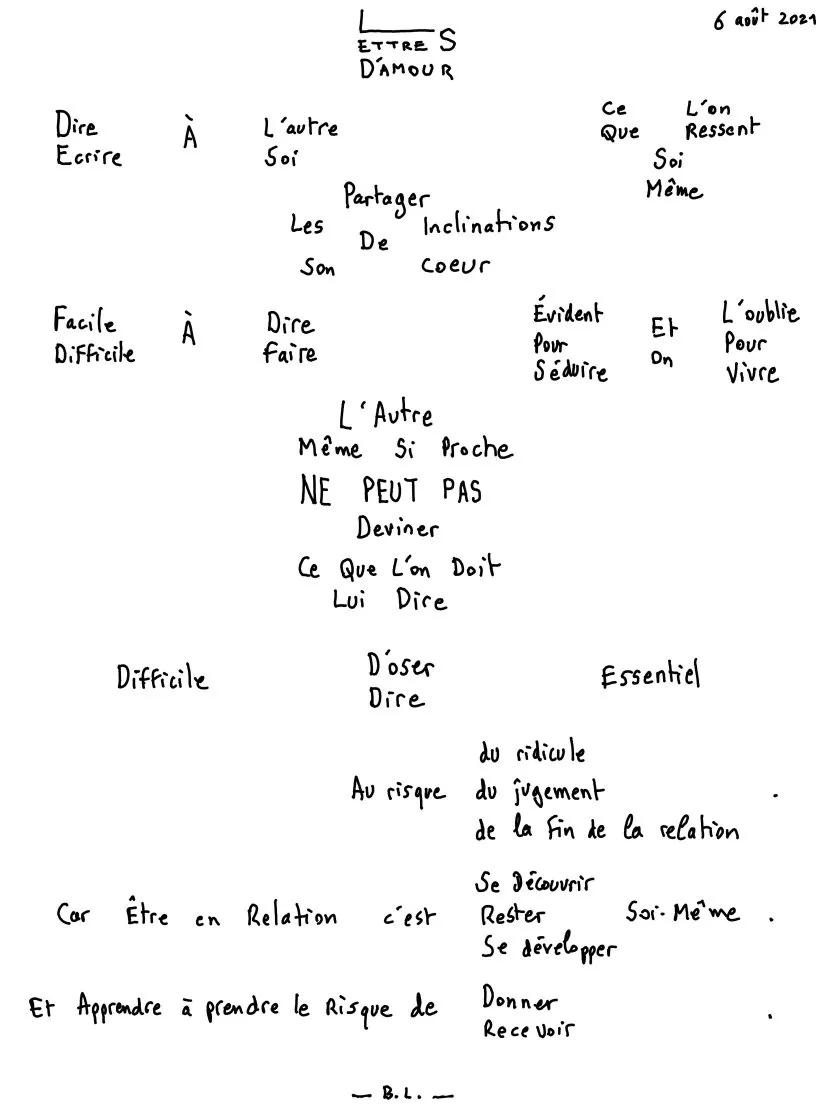 6 août 2021
LETTRES
D'AMOUR
Dire À L'autre Ce L'on
Ecrire Soi Que Ressent
Soi
Même
Partager
Les De Inclinations
Son Coeur
Facile À Dire Évident Et L'oublie
Difficile Faire Pour On Pour
Séduire Vivre
L'Autre
Même Si Proche
NE PEUT PAS
Deviner
Ce Que L'on Doit
Lui Dire
Difficile D'oser Essentiel
Dire
du ridicule
Au risque du jugement .
de la fin de la relation
Se Découvrir
Car Être en Relation c'est Rester Soi-Même .
Se développer
Et Apprendre à prendre le Risque de Donner
Recevoir .
— B.L. —